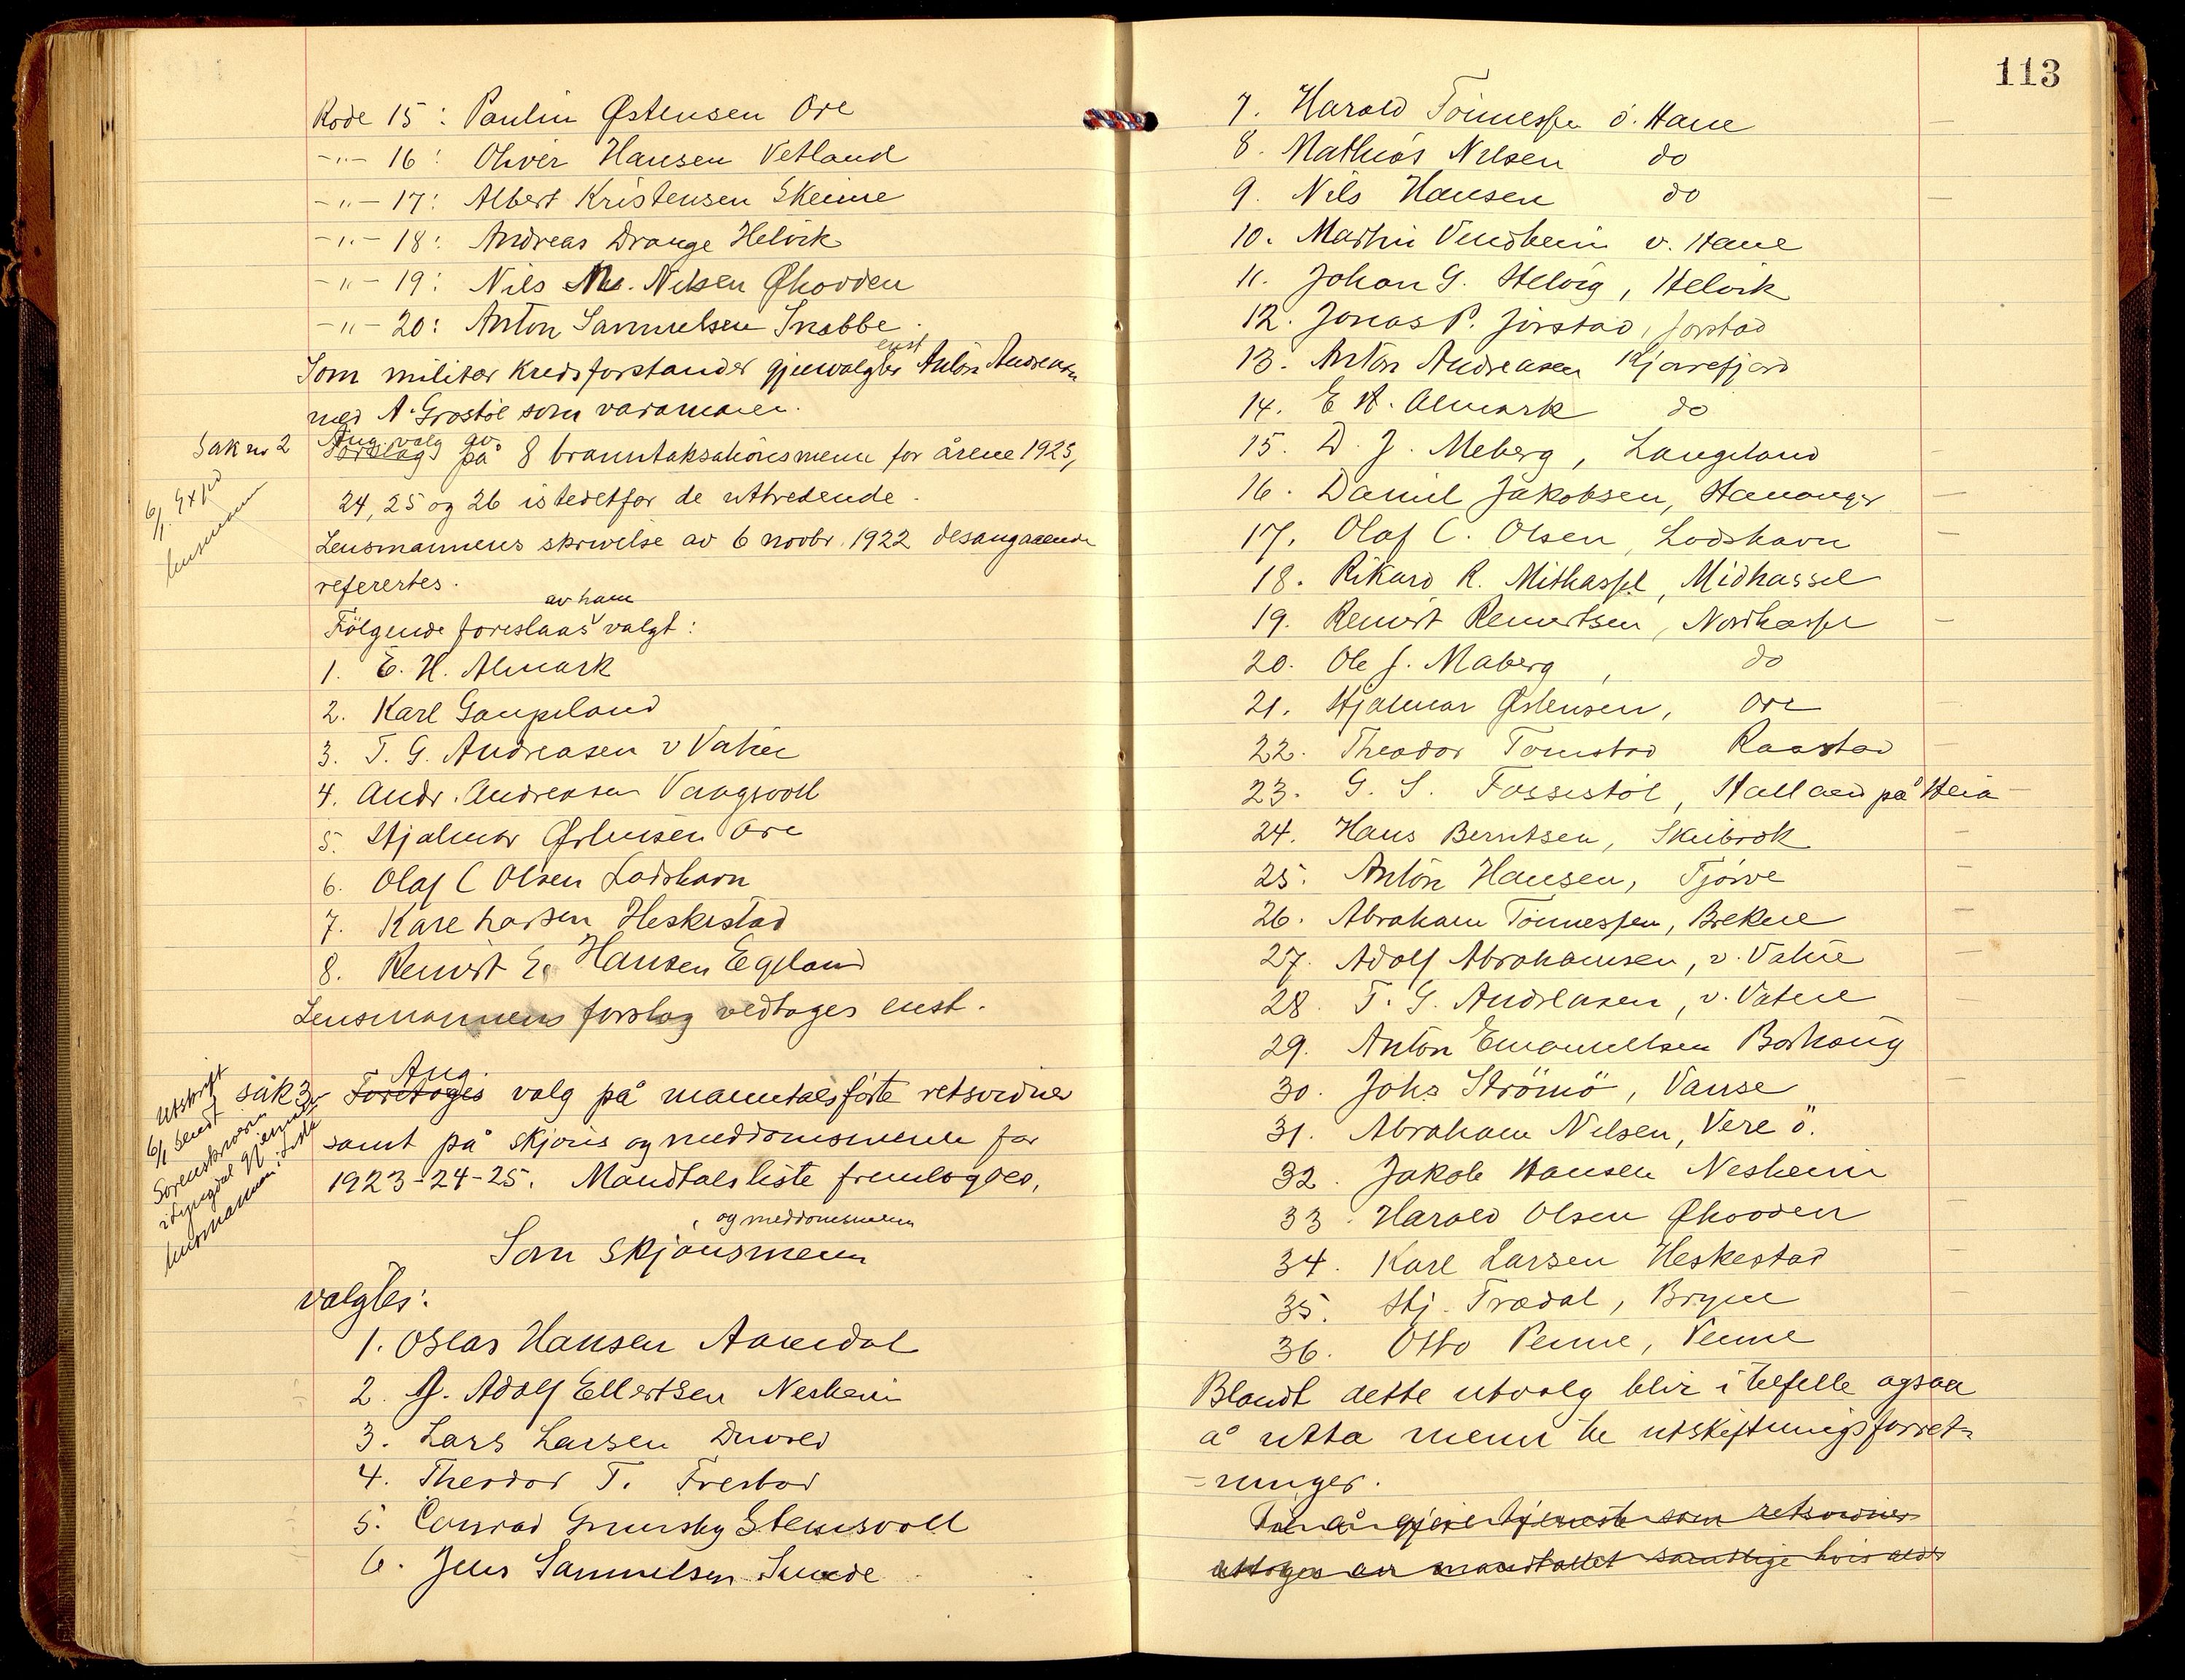 Rode 15: Paulin Østensen Ore
-"- 16: Oliver Hansen Vetland
-"- 17: Albert Kristensen Skeime
-"- 18: Andreas Drange Helvik
-"- 19: Nils M. Nilsen Øhodden
-"- 20: Anton Samuelsen Snabbe.
Som militær kredsforstander gjenvalgtes enst Anton Andreasen
med A. Grostøl som varamann.
Sak nr 2 Ang. valg av på 8 branntaksationsmenn for årene 1923,
24, 25 og 26 istedetfor de uttredende.
6/1. Exped
lensmann
Lensmannens skrivelse av 6 novbr. 1922 desangaaende
referertes.
Følgende foreslaas av ham valgt:
1. E. H. Almark
2. Karl Gaupeland
3. T. G. Andreasen v Vatne
4. Andr. Andreasen Vangsvoll
5. Hjalmar Østensen Ore
6. Olaf C Olsen Lodshavn
7. Karl Larsen Heskestad
8. Remert E. Hansen Egeland
Lensmannens forslag vedtages enst.
sak 3 Ang. Foretoges valg på manntalsførte retsvidner
samt på skjøns og meddomsmenn for
1923-24-25. Mandtalsliste fremlagdes.
Utskrift
6/1 sendt
Sorenskriveren
i Lyngdal gjennem
lensmannen i Lista
Som skjønsmenn og meddomsmenn
valgtes:
1. Oskar Hansen Aamdal
2. J. Adolf Ellertsen Nesheim
3. Lars Larsen
4. Theodor T. Frestad
5. Conrad Grunsby Stensvoll
6. Jens Samuelsen Sunde
113
7. Harald Tönnessen ö. Hane
8. Mathias Nilsen do
9. Nils Hansen do
10. Martin Vindheim v. Hane
11. Johan G. Helvig, Helvik
12. Jonas P. Jörstad, Jørstad
13. Anton Andreasen Kjørrefjord
14. E H. Almark do
15. D. J. Meberg, Langeland
16. Daniel Jakobsen, Hananger
17. Olaf C. Olsen, Lodshavn
18. Rikard R. Mithassel, Midhassel
19. Remert Remertsen, Nordhassel
20. Ole J. Maberg, do
21. Hjalmar Østensen, Ore
22. Theodor Tomstad Raastad
23. G. S. Fossestøl, Halland på Heia
24. Hans Berntsen, Skeibrok
25. Anton Hansen, Tjørve
26. Abraham Tönnessen, Brekne
27. Adolf Abrahamsen, v. Vatne
28. T. G. Andreasen, v. Vatne
29. Anton Emanuelsen Borhaug
30. Johs Strömö, Vanse
31. Abraham Nilsen, Vere ö.
32. Jakob Hansen Nesheim
33. Harald Olsen Øhodden
34. Karl Larsen Heskestad
35. Hj. Trædal, Bryne
36. Otto Penne, Penne
Blandt dette utvalg blir i tilfelle ogsaa
å utta menn til utskiftningsforret-
-ninger.
Til å gjøre tjeneste som retsvidner
uttoges av mandtallet samtlige hvis alder